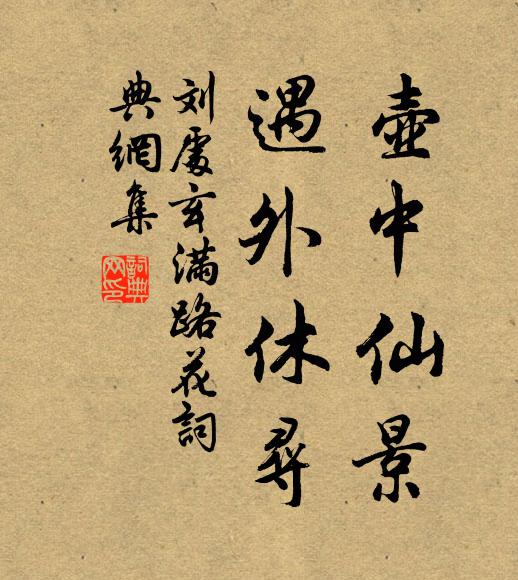 壺中仙景
遇外休尋
刘處玄滿路花詞
典網集
詞典网印